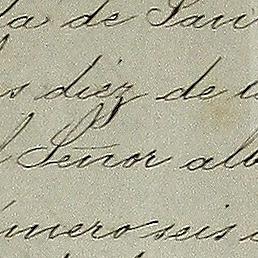 la de San
s diez de
l Señor alb
úmero seis